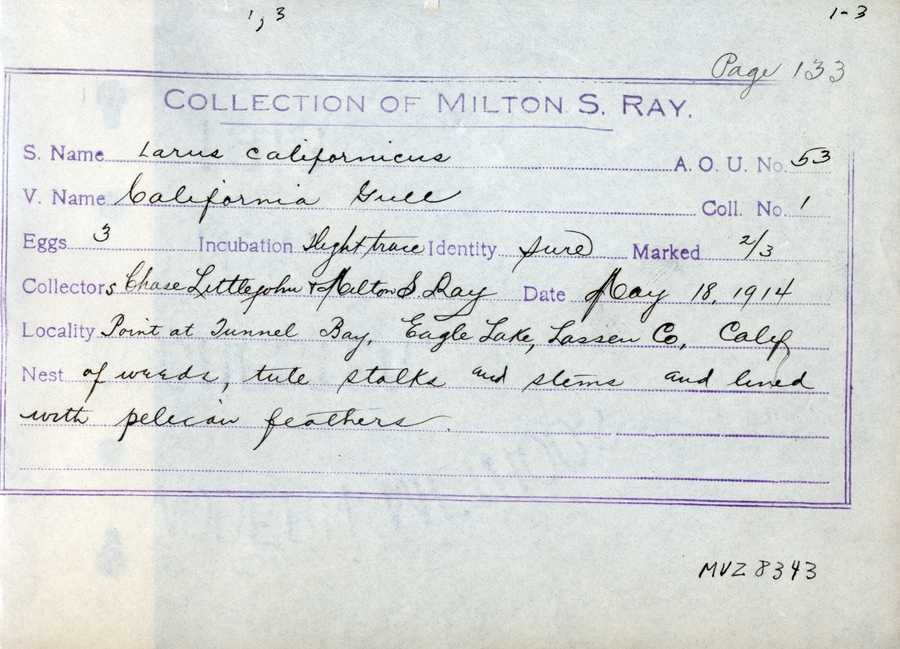 1, 3
1-3
Page 133
COLLECTION OF MILTON S. RAY.
S. Name Larus californicus A. O. U. No. 53
V. Name California Gull Coll. No. 1
Eggs 3 Incubation Slight trace Identity sure Marked 2/3
Collectors Chase Littlejohn + Milton S Ray Date May 18, 1914
Locality Point at Tunnel Bay, Eagle Lake, Lassen Co, Calif
Nest of weeds, tule stalks and stems and lined
with pelican feathers.
MVZ 8343